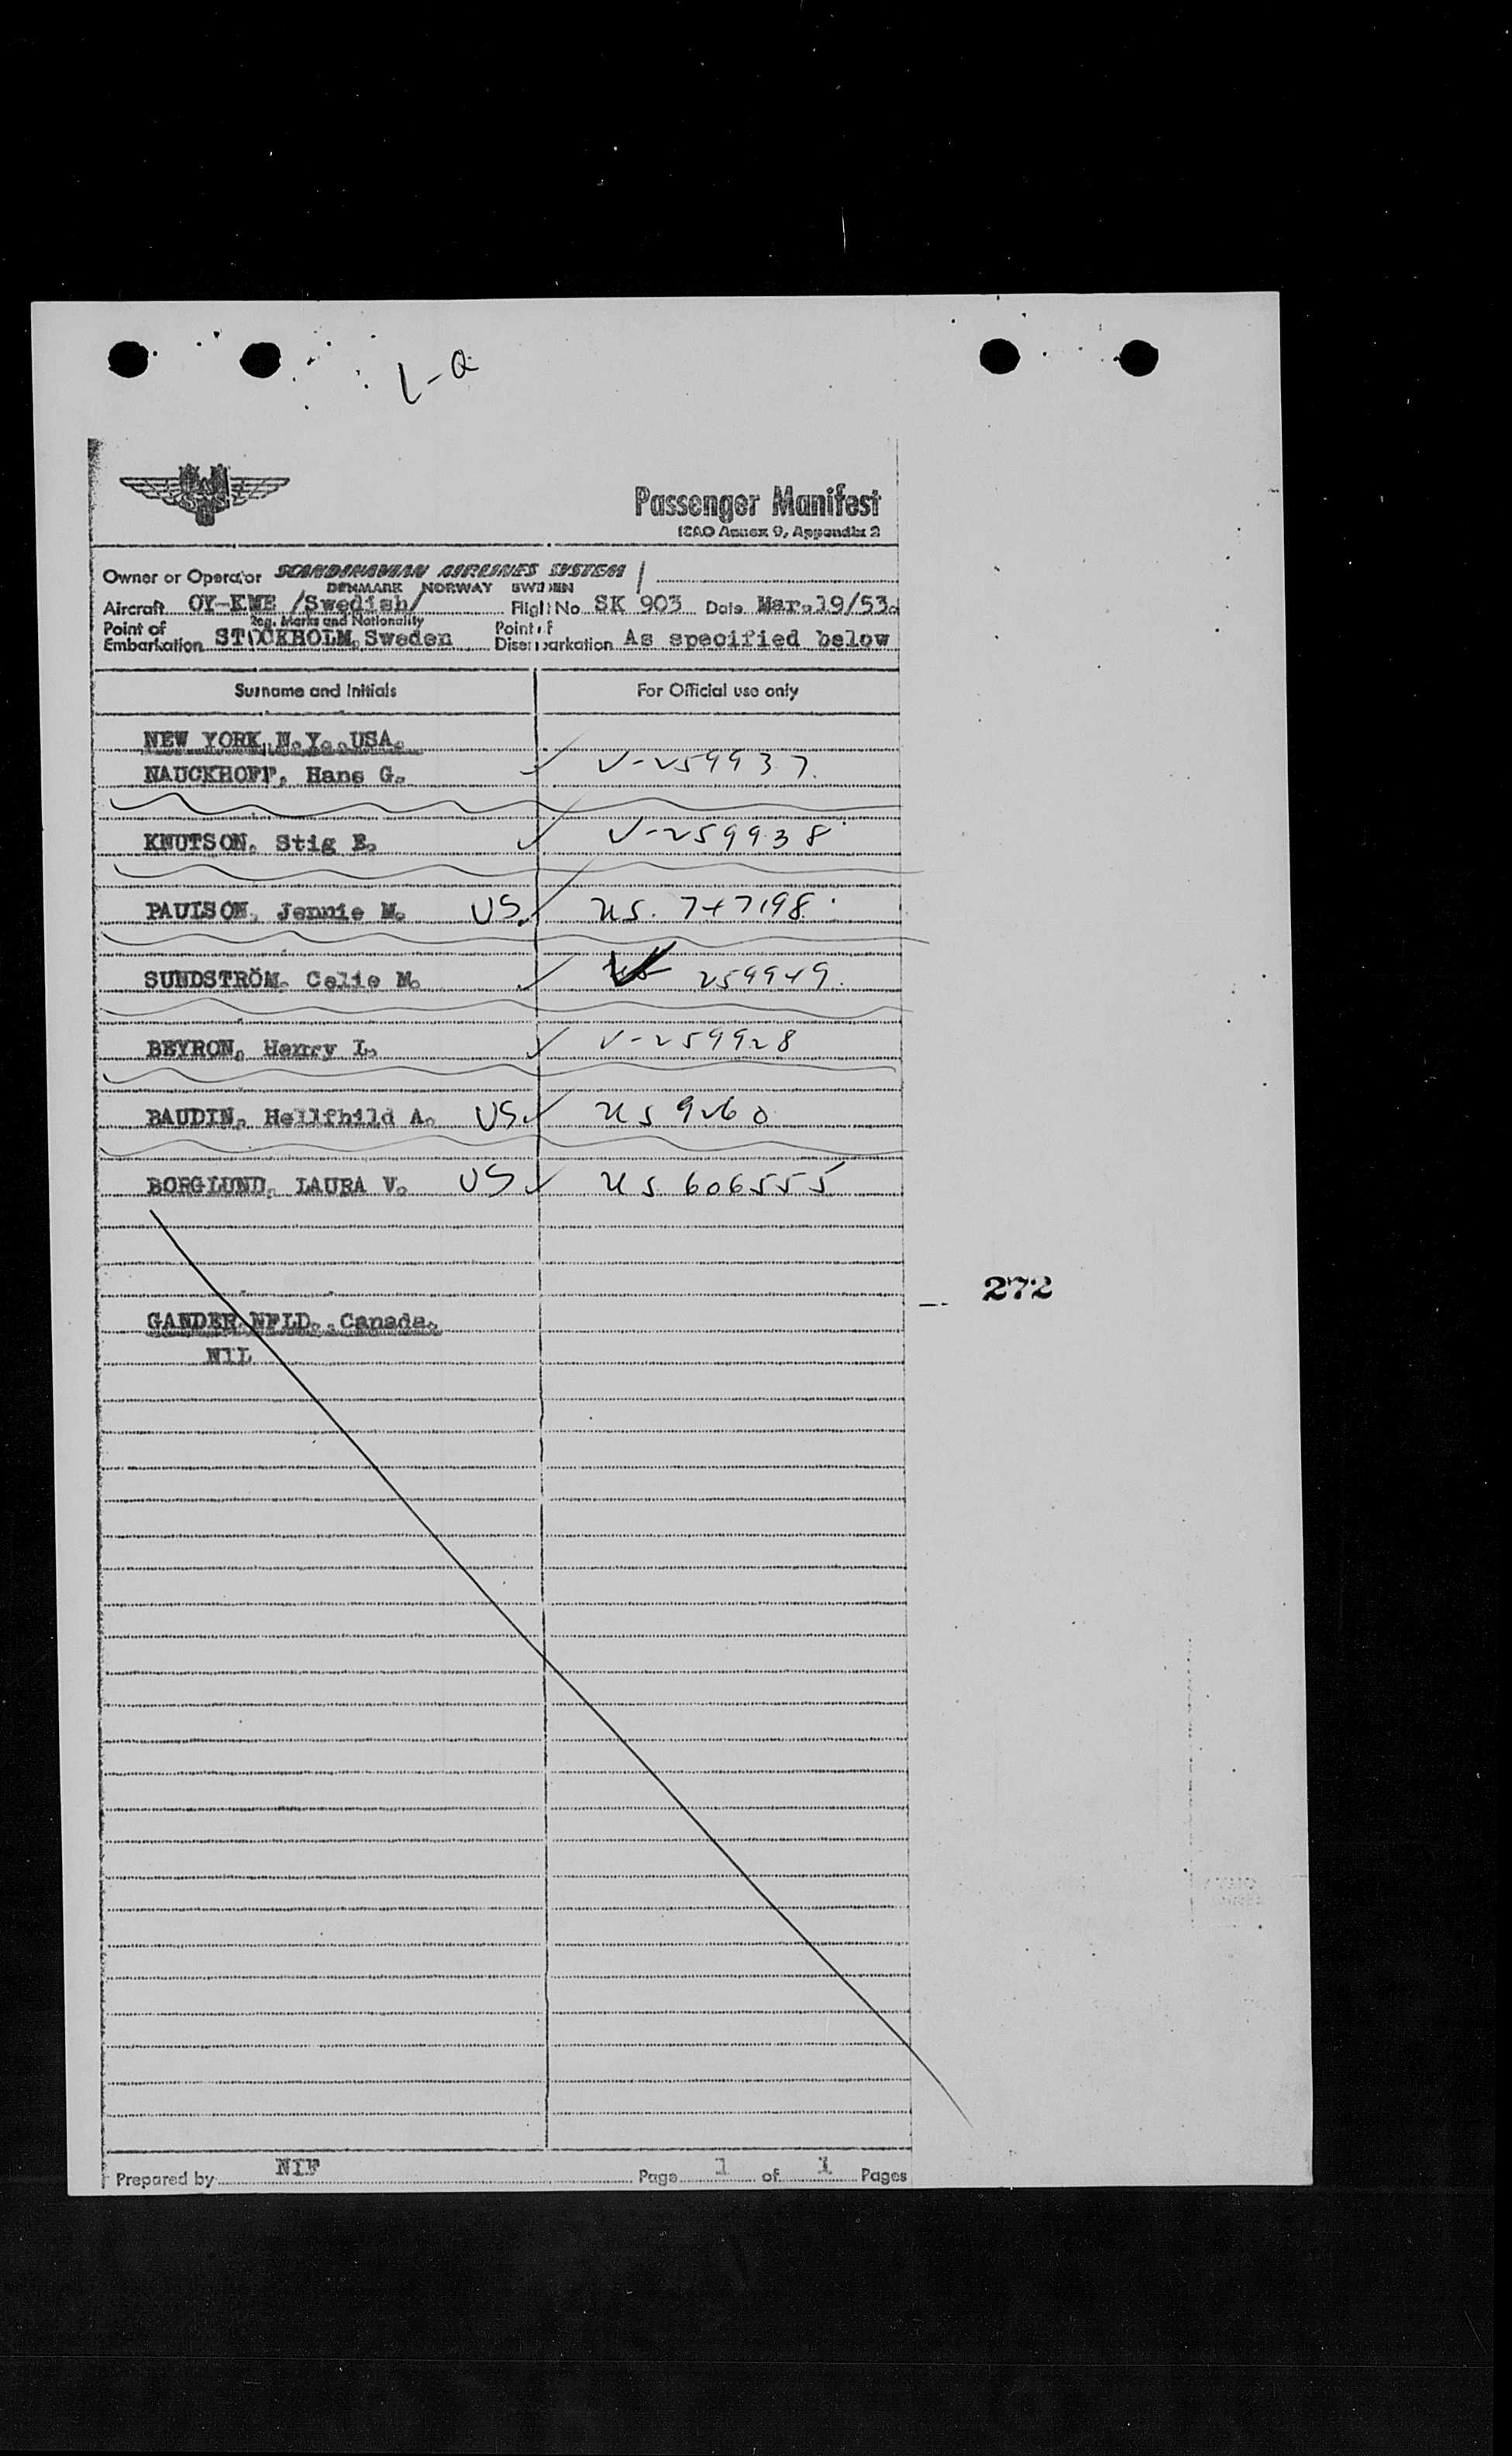 L-a
Passenger Manifest
ICAO Annex 9, Appendix 2
Owner or Operator SCANDINAVIAN AIRLINES SYSTEM
DENMARK NORWAY SWEDEN
Aircraft OY-KME /Swedish/ Flight No SK 903 Date Mar.19/53.
Reg. Marks and Nationality
Point of Embarkation STOCKHOLM, Sweden Point of Disembarkation As specified below
Surname and Initials For Official use only
NEW YORK, N.Y., USA.
NAUCKHOFF, Hans G. V-259937.
KNUTSON, Stig E. V-259938
PAULSON, Jennie M. US. US. 747198.
SUNDSTRÖM, Celie M. V 259949.
BEYRON, Henry L. V-259928
BAUDIN, Hellfhild A. US US 9260
BORGLUND, LAURA V. US US 606555
272
GANDER, NFLD., Canada.
NIL
Prepared by NIF Page 1 of 1 Pages